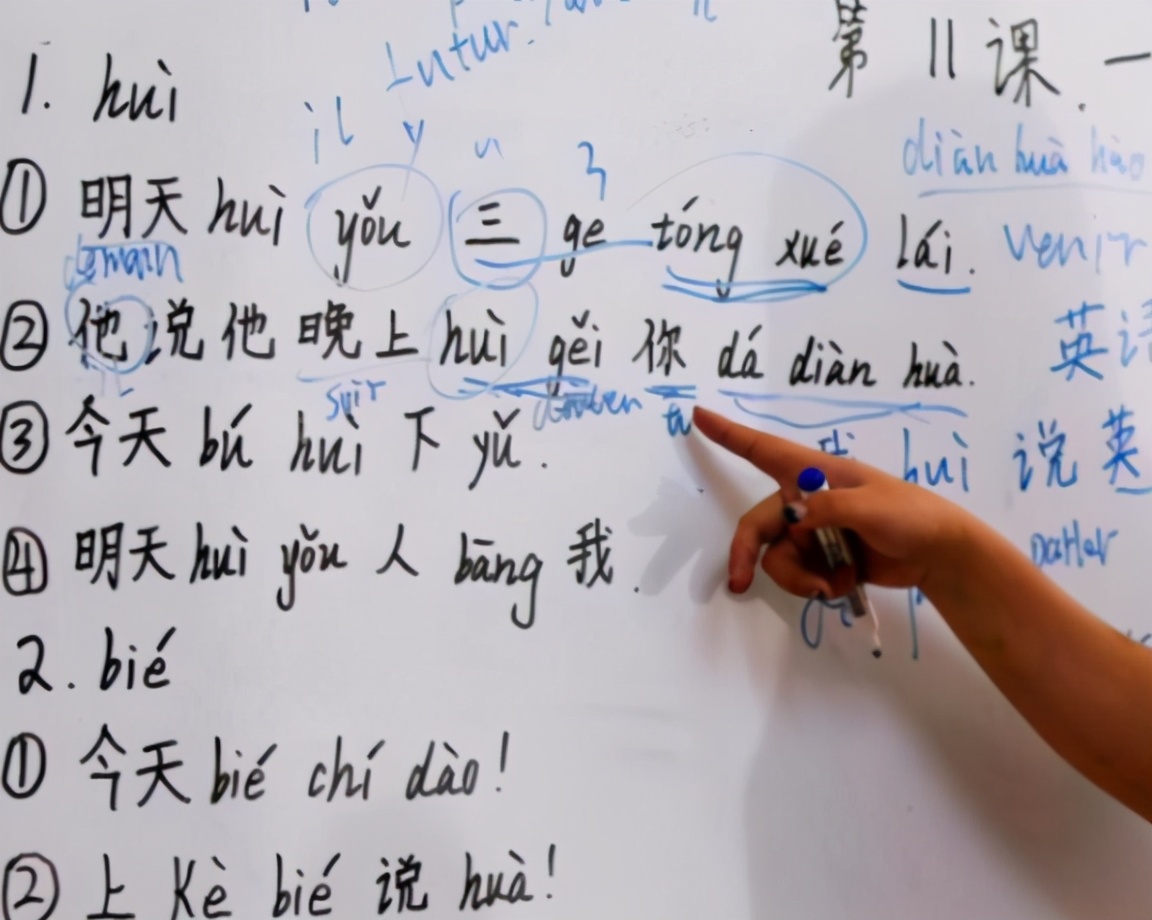 futur.
第 11 课 一
1. huì
il y
diàn huà hào
① 明天 huì yǒu 三 ge tóng xué lái. venir
demain
② 他说他晚上 huì gěi 你 dá diàn huà. 英语
soir tu
③ 今天 bú huì 下 yǔ. huì 说英
④ 明天 huì yǒu 人 bāng 我.
2. bié
① 今天 bié chí dào!
② 上 Kè bié 说 huà!